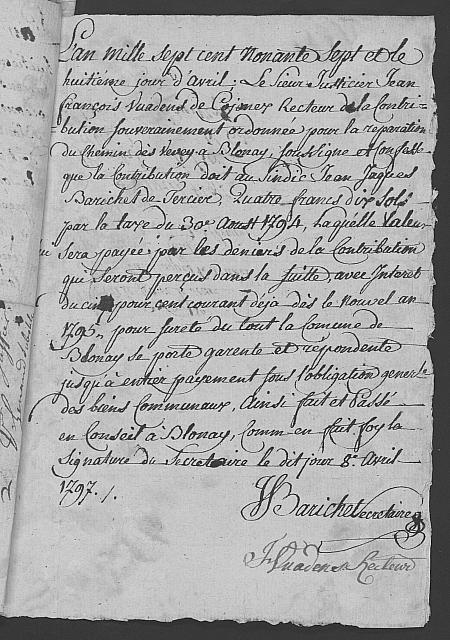 L'an Mille Sept Cent Nonante Sept et le
huitiéme jour d'Avril. Le Sieur Justicier Jean
François Vuadens de Cojonex Recteur de la Contri=
=bution Souverainement ordonnée pour la reparation
du Chemin des Vevey à Blonay, soussigne et confesse
que la Contribution doit au Sindic Jean Jaques
Barichet de Tercier, Quatre francs dix Sols
par la taxe du 30e Aoust 1794, laquelle Valeur
Sera payée par les deniers de la Contribution
qui Seront perçus dans la Suitte, avec Interet
du cinq pour cent courant déja dès le Nouvel an
1795, pour sureté du tout la Comune de
Blonay se porte garente et répondente
jusqu'à entier payement sous l'obligation generle
des biens Communaux, Ainsi fait et Passé
en Conseil à Blonay, Comm en fait foy la
Signature du Secretaire le dit jour 8e Avril
1797./.
Barichet Secretaire
Vuadens Recteur